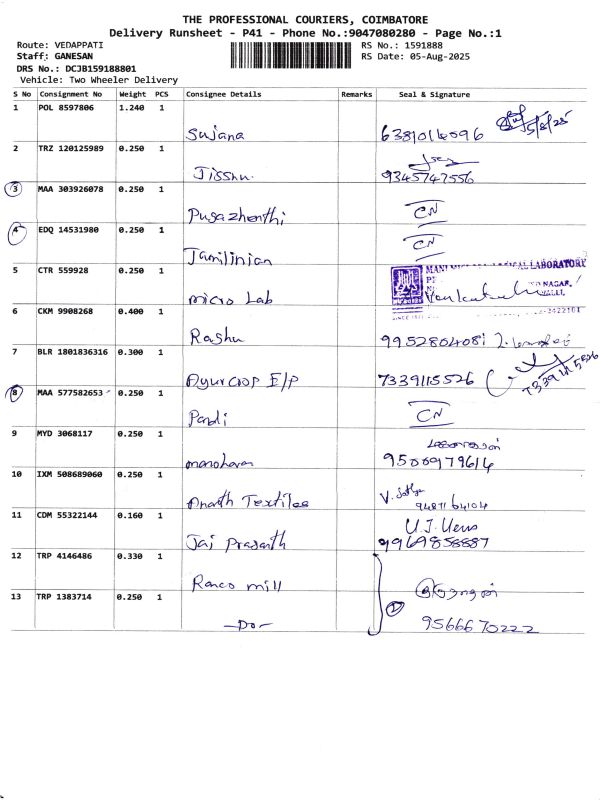 THE PROFESSIONAL COURIERS, COIMBATORE
Delivery Runsheet - P41 - Phone No.:9047080280 - Page No.:1
Route: VEDAPPATI
RS No.: 1591888
Staff: GANESAN
RS Date: 05-Aug-2025
DRS No.: DCJB159188801
Vehicle: Two Wheeler Delivery
S No Consignment No Weight PCS Consignee Details Remarks Seal & Signature
1 POL 8597806 1.240 1
5/8/25
Sujana 6381014596
2 TRZ 120125989 0.250 1
Jisshu. 9345747556
3 MAA 303926078 0.250 1
Pugazhenthi CN
4 EDQ 14531980 0.250 1
Tamilinian CN
5 CTR 559928 0.250 1
LABORATORY
NAGAR,
micro Lab
6 CKM 9908268 0.400 1
Rashu 9952804081
7 BLR 1801836316 0.300 1
Ayurcrop E/P 7339115526
8 MAA 577582653 0.250 1
Pandi CN
9 MYD 3068117 0.250 1
manoharan 9500979614
10 IXM 508689060 0.250 1
Ananth Textiles V. Sathya
9487164104
11 CDM 55322144 0.160 1
Jai Prasanth 9969858887
12 TRP 4146486 0.330 1
Ranco mill
13 TRP 1383714 0.250 1
2
—Do— 9566670222